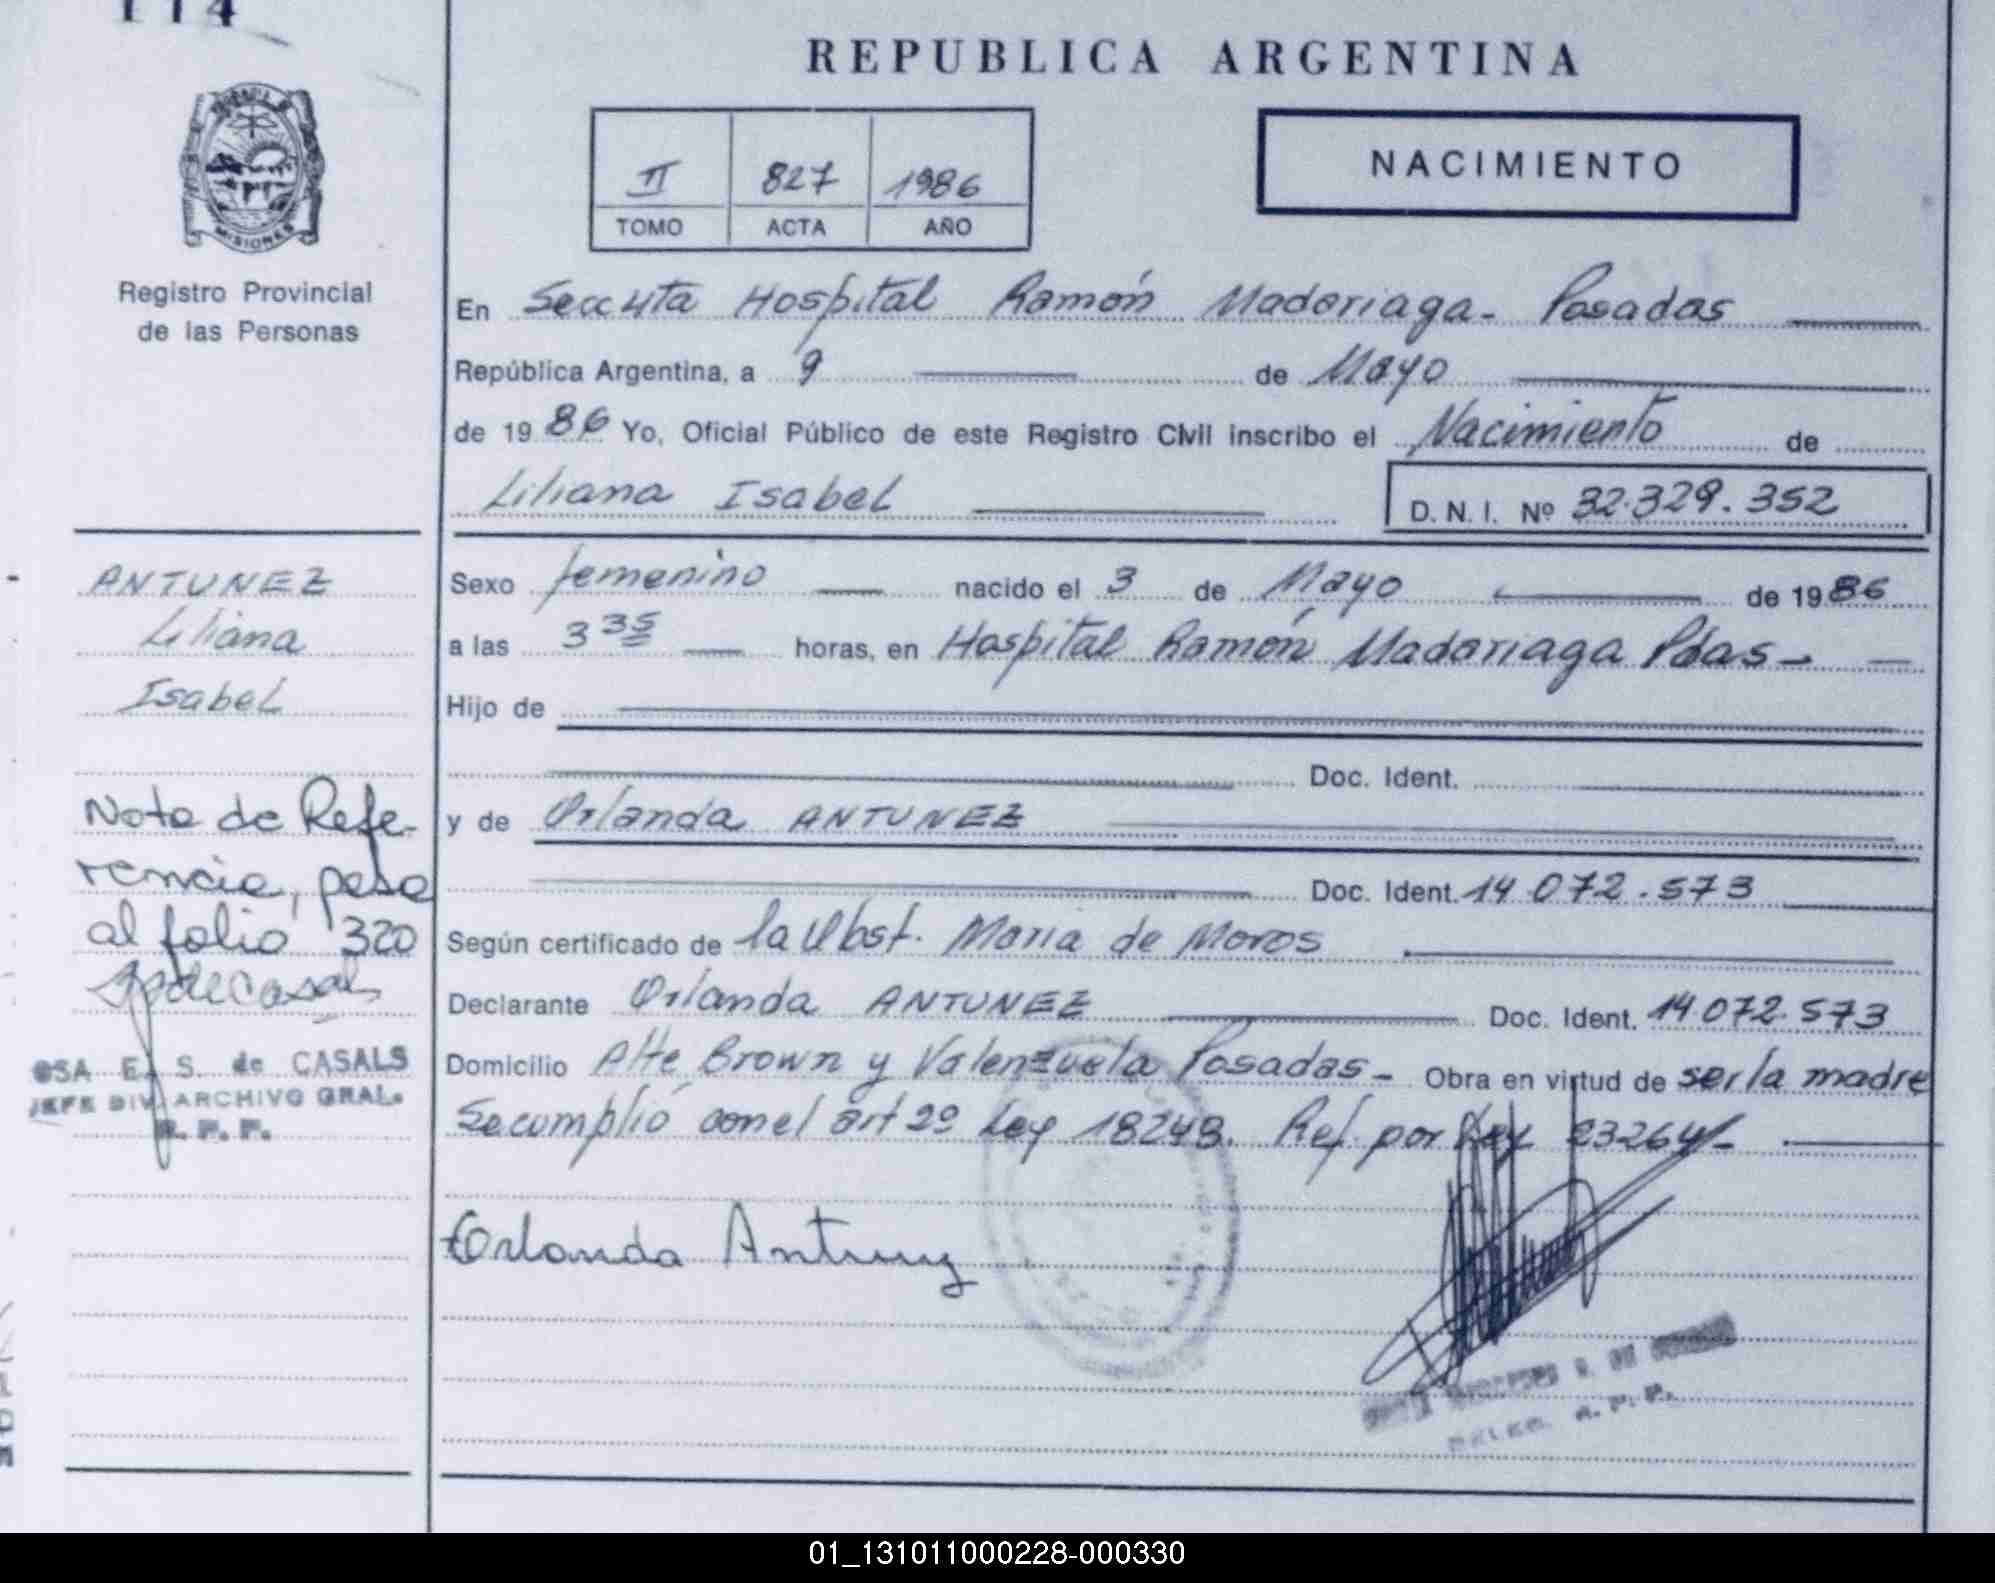 114
REPUBLICA ARGENTINA
MISIONES
Registro Provincial
de las Personas
II 827 1986
TOMO ACTA AÑO
NACIMIENTO
En Secc 4ta Hospital Ramón Madariaga - Posadas
República Argentina, a 9 de Mayo
de 1986 Yo, Oficial Público de este Registro Civil inscribo el Nacimiento de
Liliana Isabel
D. N. I. Nº 32.329.352
ANTUNEZ
Liliana
Isabel
Nota de Refe-
rencia, pasa
al folio 320
OSA E. S. de CASALS
JEFE DIV ARCHIVO GRAL.
R. P. P.
Sexo femenino nacido el 3 de Mayo de 1986
a las 3 35 horas, en Hospital Ramón Madariaga Pdas -
Hijo de
Doc. Ident.
y de Orlanda ANTUNEZ
Doc. Ident. 14.072.573
Según certificado de la Obst. Maria de Moros
Declarante Orlanda ANTUNEZ Doc. Ident. 14.072.573
Domicilio Alte Brown y Valenzuela Posadas - Obra en virtud de ser la madre
Se cumplió con el art 2º Ley 18248. Ref. por Ley 23264 -
Orlanda Antunez
R. P. P.
01_131011000228-000330